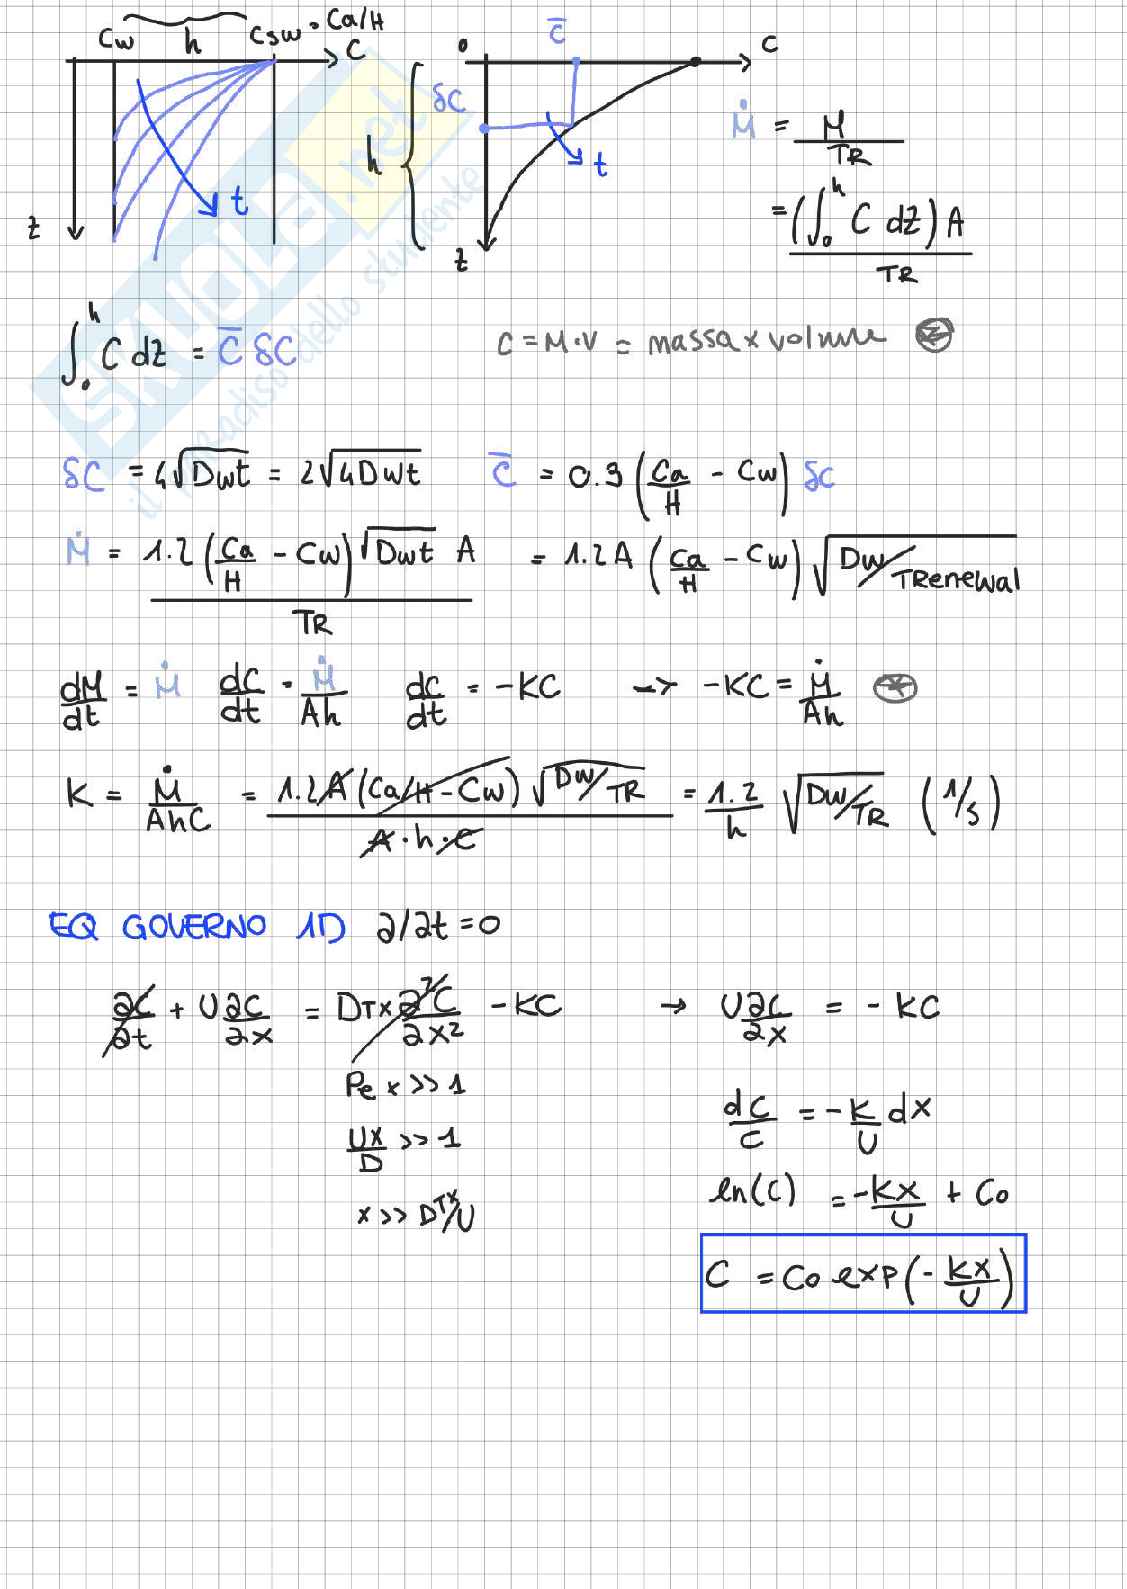 Cw h Csw = Ca/H
C
t
z
0 C̅ C
δC
h
t
z
Ṁ = M / TR
= (∫₀ʰ C dz) A / TR
∫₀ʰ C dz = C̅ δC
C = M · V = massa x volume
δC = 4√(Dwt) = 2√(4Dwt) C̅ = 0.3 (Ca/H - Cw) δc
Ṁ = 1.2 (Ca/H - Cw) √(Dwt) A / TR = 1.2 A (Ca/H - Cw) √(Dw/TRenewal)
dM/dt = Ṁ dC/dt = Ṁ/Ah dC/dt = -KC -> -KC = Ṁ/Ah
K = Ṁ/AhC = 1.2 A (Ca/H - Cw) √(Dw/TR) / A · h · C = 1.2/h √(Dw/TR) (1/s)
EQ GOVERNO 1D ∂/∂t = 0
∂C/∂t + U ∂C/∂x = DTx ∂²C/∂x² - KC → U ∂C/∂x = - KC
Pe x >> 1
Ux/D >> 1
x >> DTx/U
dC/C = -K/U dx
ln(C) = -Kx/U + Co
C = Co exp(- Kx/U)
SKUOLA.net
il paradiso dello studente